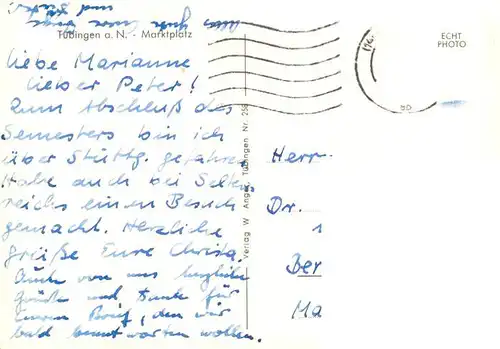 Tübingen a. N. - Marktplatz
ECHT
PHOTO
Liebe Marianne
lieber Peter!
Zum Abschluß des
Semesters bin ich
über Stuttg. gefahren
Habe auch bei
reichs einen Besuch
gemacht. Herzliche
Grüße Eure Christa.
Auch von uns herzliche
Grüße und Dank für
Euren Brief, den wir
bald beantworten wollen.
und
Alles Gute
Verlag W. Angst, Tübingen Nr.
Herr
Dr.
1
Ber
Ma